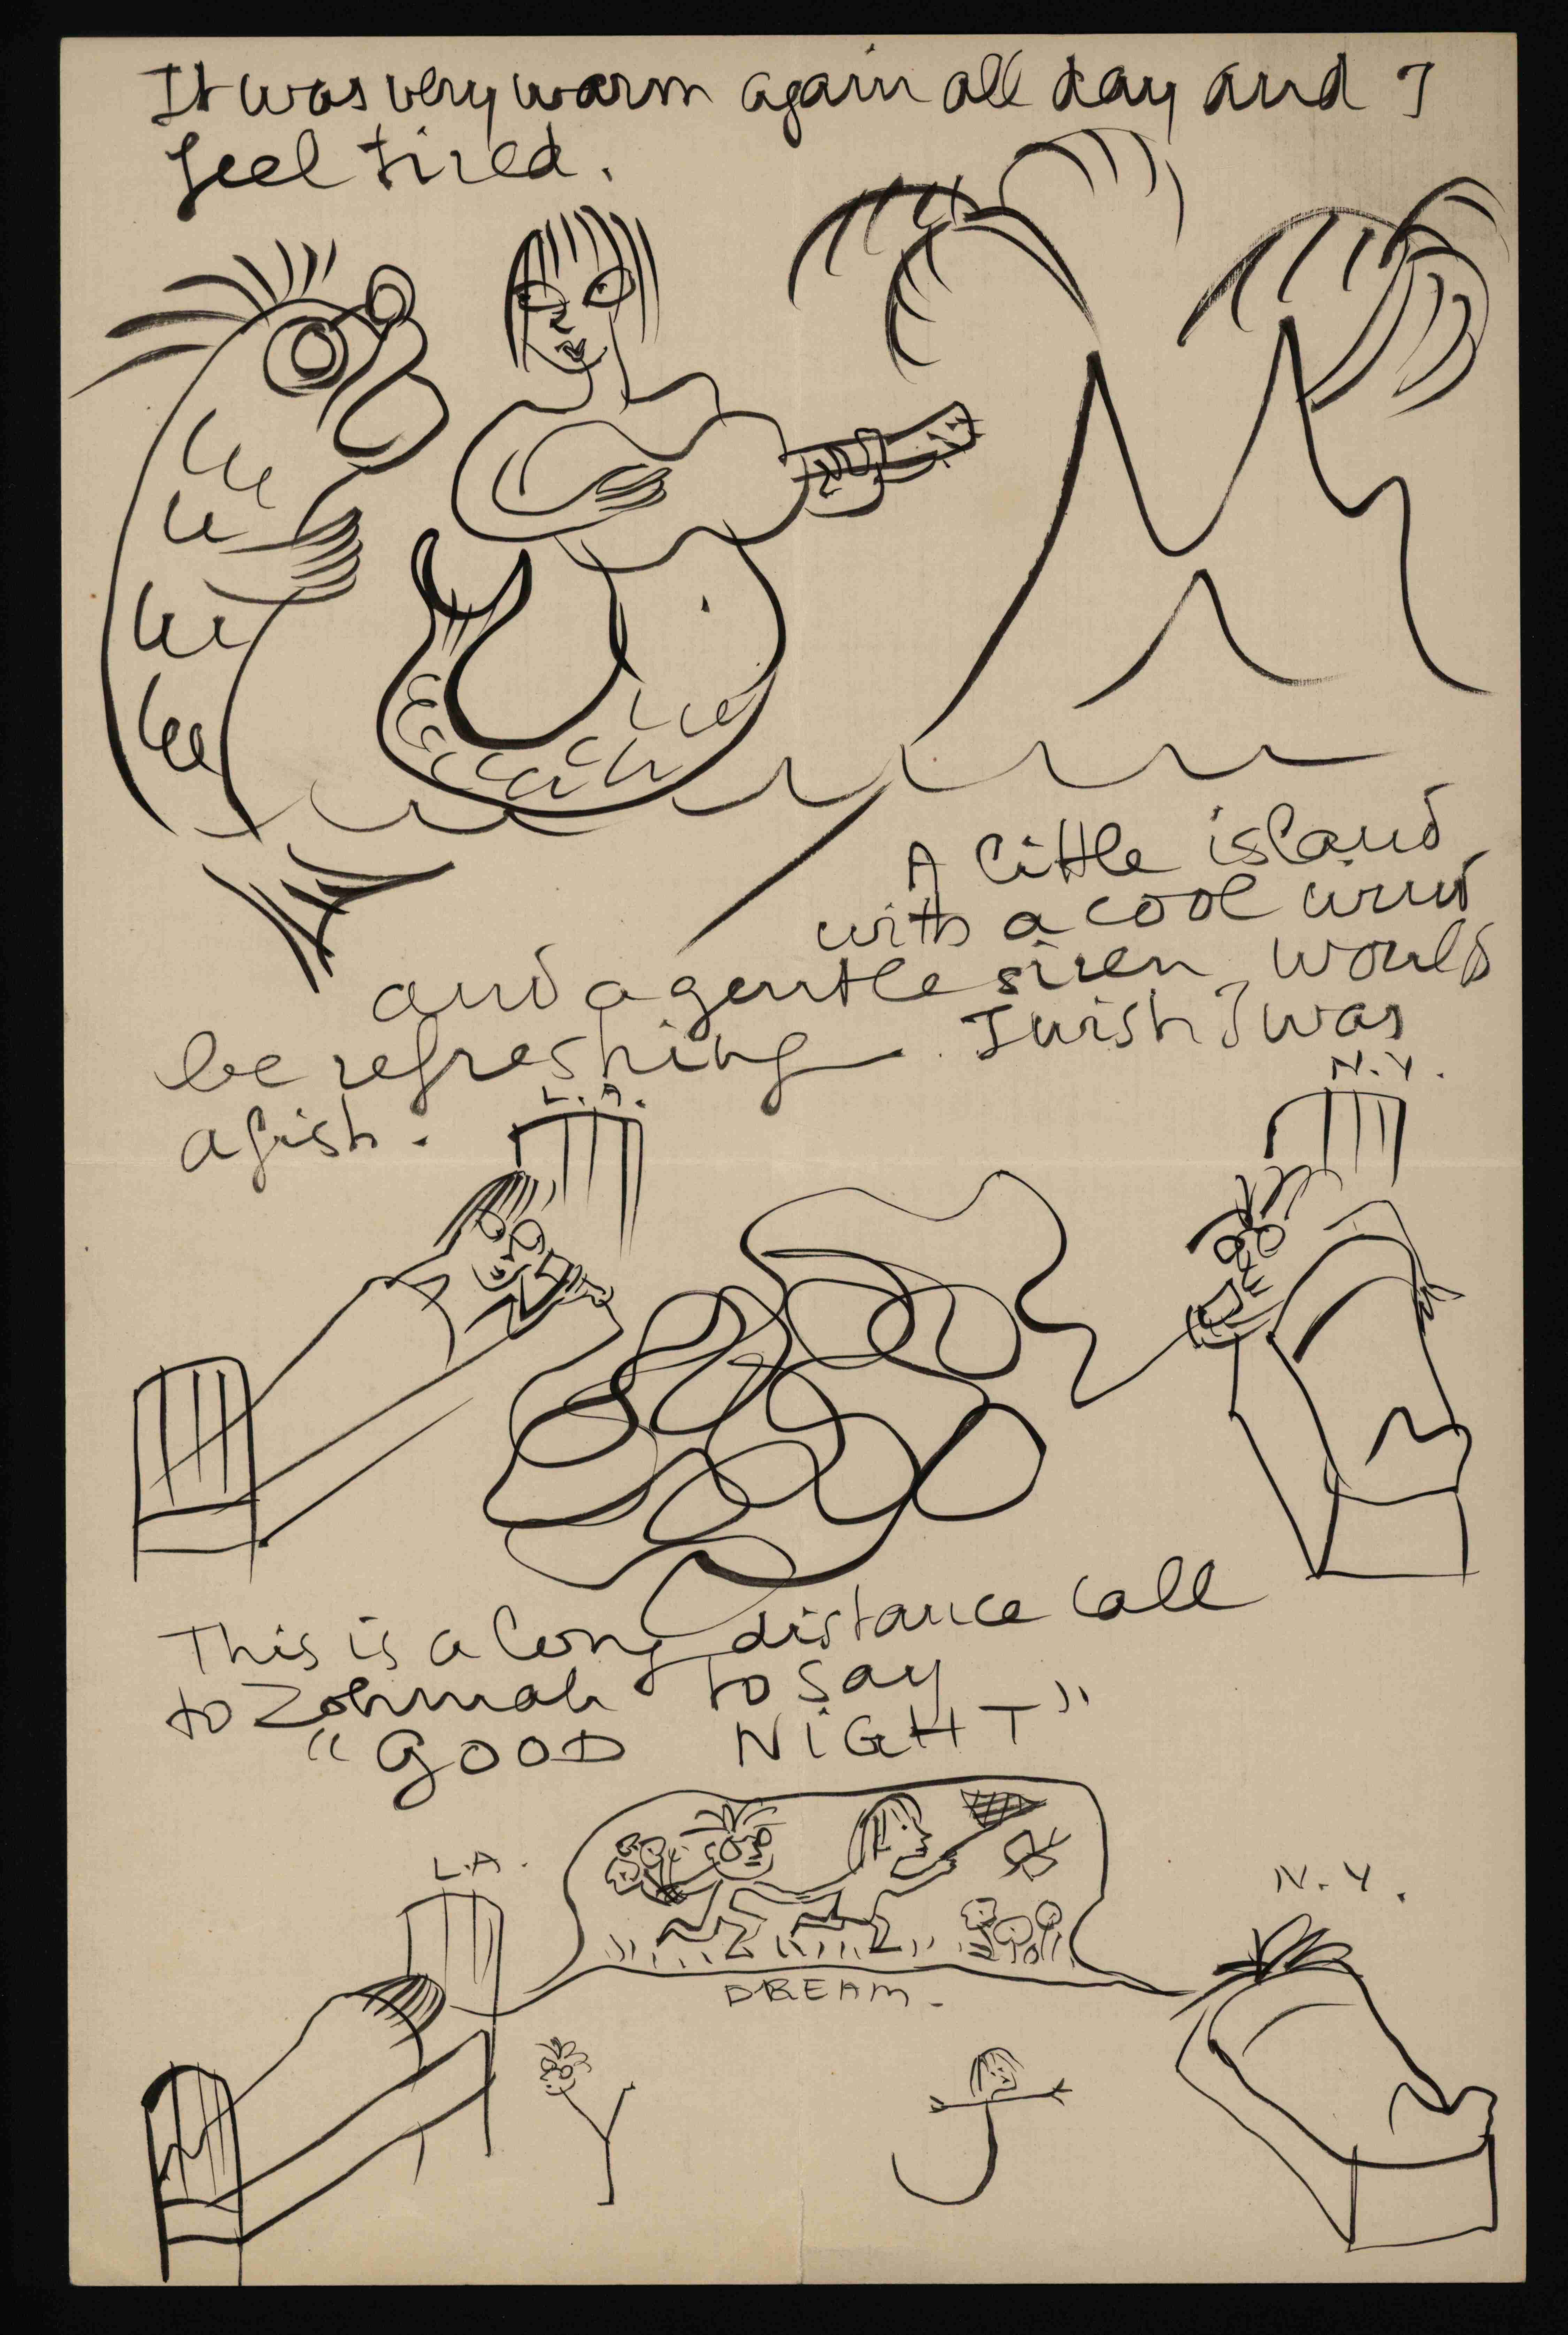 It was very warm again all day and I
feel tired.
A little island
with a cool wind
and a gentle siren, would
be refreshing. I wish I was
a fish.
L.A.
N.Y.
This is a long distance call
to Zohmah to say
"GOOD NIGHT"
L.A.
N.Y.
DREAM.